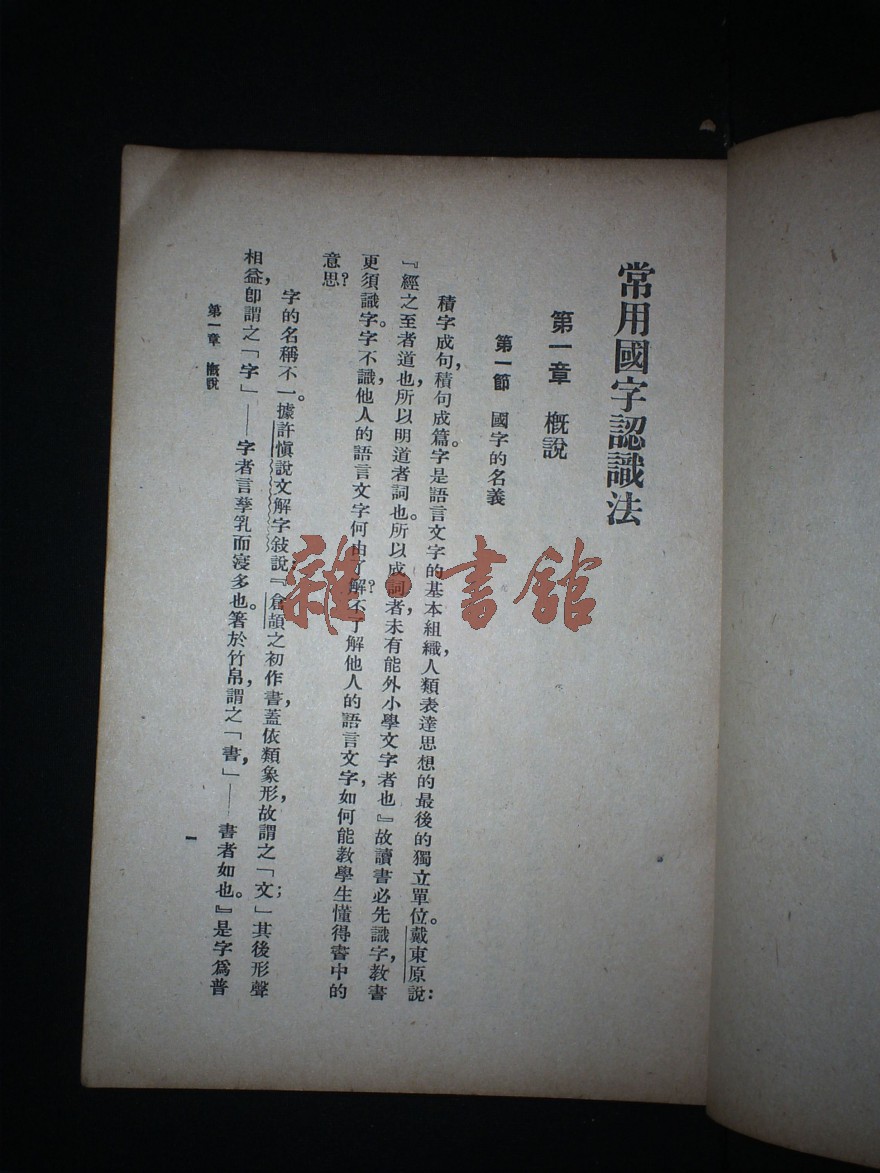 常用國字認識法
第一章 概說
第一節 國字的名義
積字成句,積句成篇。字是語言文字的基本組織,人類表達思想的最後的獨立單位。戴東原說:
『經之至者道也,所以明道者詞也。所以成詞者,未有能外小學文字者也』故讀書必先識字,教書
更須識字。字不識,他人的語言文字何由了解?不了解他人的語言文字,如何能教學生懂得書中的
意思?
字的名稱不一。據許慎說文解字敍說『倉頡之初作書,蓋依類象形,故謂之「文」;其後形聲
相益,卽謂之「字」——字者言孳乳而寖多也。箸於竹帛,謂之「書」——書者如也。』是字爲普
第一章 概說
一
雜·書舘